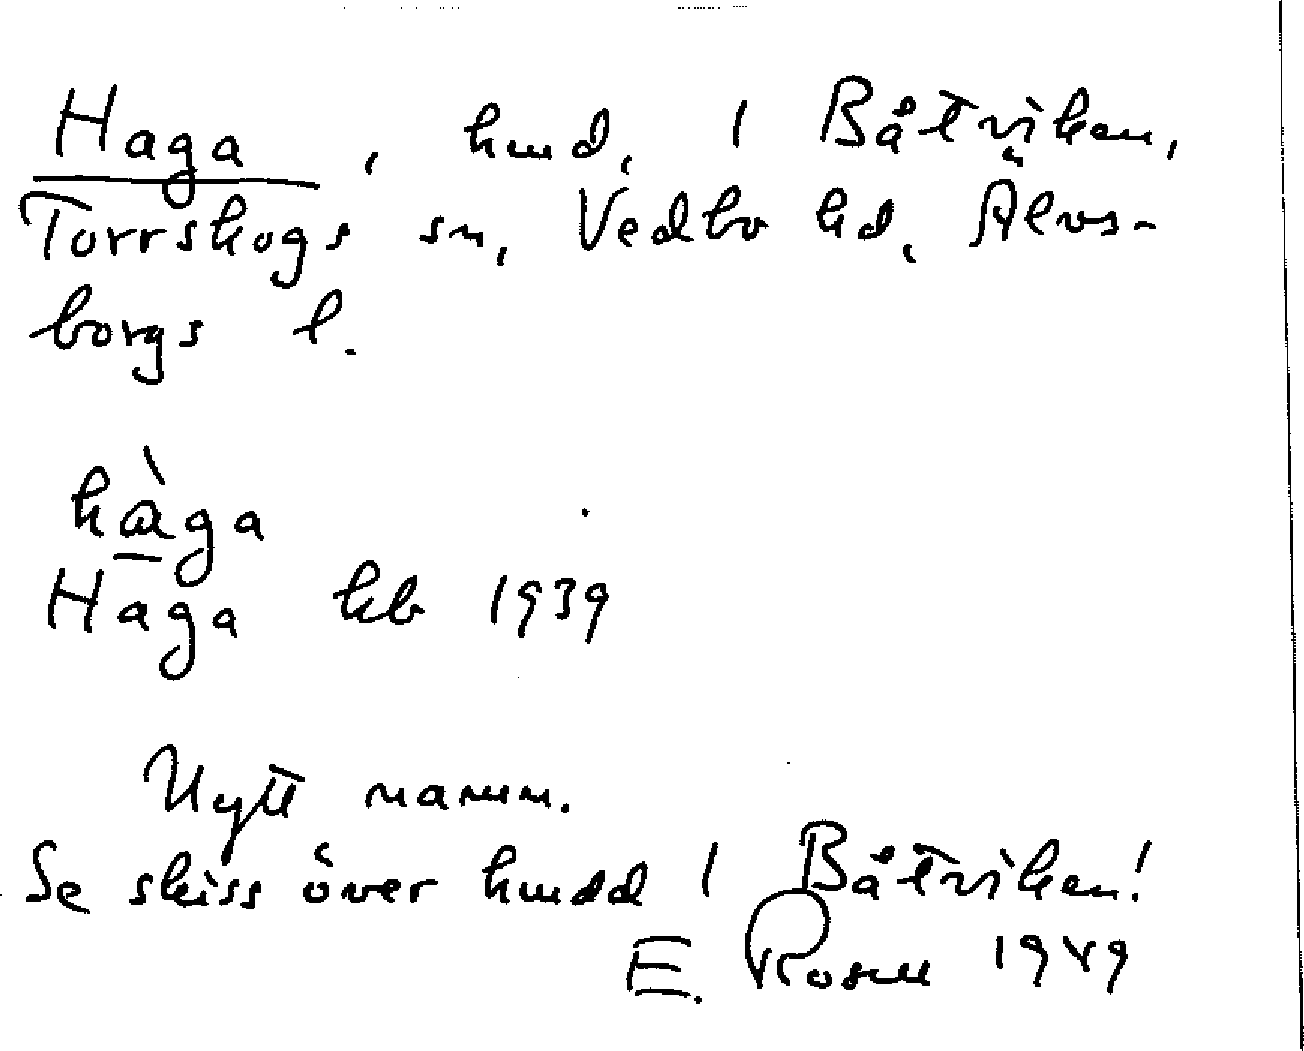 Haga, hmd, i Båtviken,
Torrskogs sn, Vedbo hd, Älvs-
borgs l.
hàga
Haga kb 1939
Nytt namn.
Se skiss över hmdd i Båtviken!
E. Rosell 1949